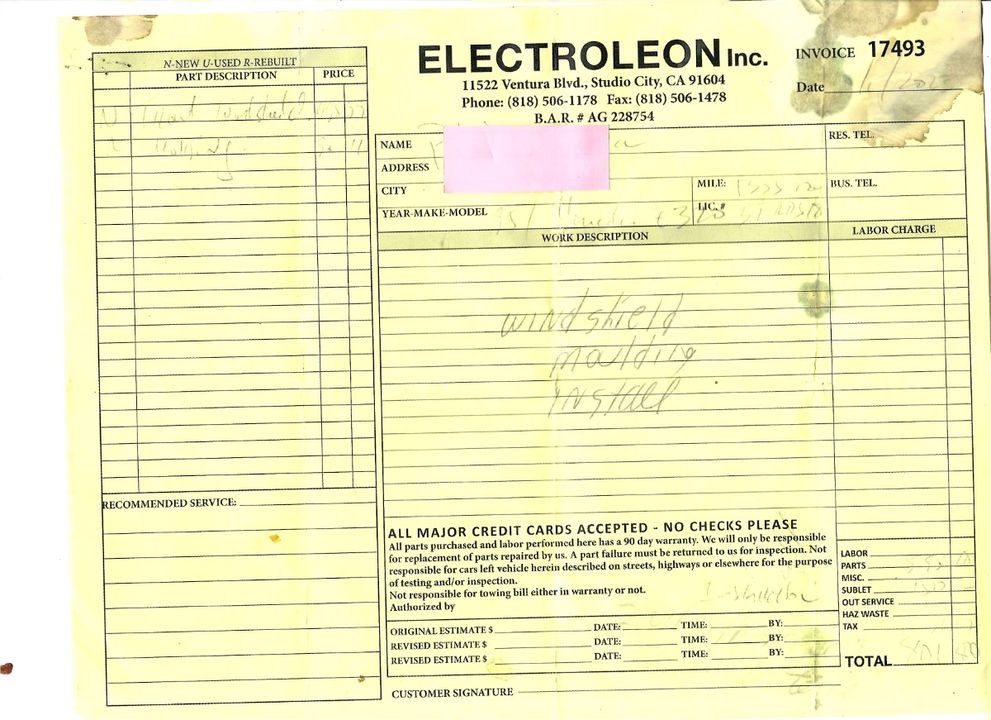 N-NEW U-USED R-REBUILT
PART DESCRIPTION PRICE
N
RECOMMENDED SERVICE:
ELECTROLEON Inc.
11522 Ventura Blvd., Studio City, CA 91604
Phone: (818) 506-1178 Fax: (818) 506-1478
B.A.R. # AG 228754
INVOICE 17493
Date
NAME
RES. TEL.
ADDRESS
CITY
MILE:
BUS. TEL.
YEAR-MAKE-MODEL
LIC. #
WORK DESCRIPTION
LABOR CHARGE
windshield
moulding
install
ALL MAJOR CREDIT CARDS ACCEPTED - NO CHECKS PLEASE
All parts purchased and labor performed here has a 90 day warranty. We will only be responsible
for replacement of parts repaired by us. A part failure must be returned to us for inspection. Not
responsible for cars left vehicle herein described on streets, highways or elsewhere for the purpose
of testing and/or inspection.
Not responsible for towing bill either in warranty or not.
Authorized by
ORIGINAL ESTIMATE $ DATE: TIME: BY:
REVISED ESTIMATE $ DATE: TIME: BY:
REVISED ESTIMATE $ DATE: TIME: BY:
CUSTOMER SIGNATURE
LABOR
PARTS
MISC.
SUBLET
OUT SERVICE
HAZ WASTE
TAX
TOTAL